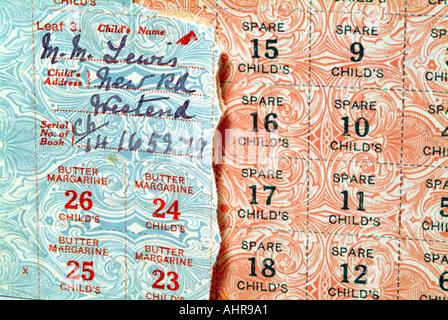 Leaf 3. Child's Name
M. M. Lewis
Child's Address New Rd
Westend
Serial No. of Book
BUTTER MARGARINE 26 CHILD'S
BUTTER MARGARINE 24 CHILD'S
BUTTER MARGARINE 25 CHILD'S
BUTTER MARGARINE 23 CHILD'S
X
SPARE 15 CHILD'S
SPARE 9 CHILD'S
SPARE 16 CHILD'S
SPARE 10 CHILD'S
SPARE 17 CHILD'S
SPARE 11 CHILD'S
SPARE 18 CHILD'S
SPARE 12 CHILD'S
alamy
Image ID: AHR9A1
www.alamy.com